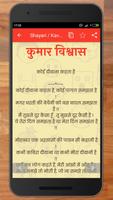 Shayari / Kav...
कुमार विश्वास
कोई दीवाना कहता है
कोई दीवाना कहता है, कोई पागल समझता है !
मगर धरती की बेचैनी को बस बादल समझता है !!
मैं तुझसे दूर कैसा हूँ, तू मुझसे दूर कैसी है !
ये तेरा दिल समझता है या मेरा दिल समझता है !!
मोहब्बत एक अहसासों की पावन सी कहानी है !
कभी कबिरा दीवाना था कभी मीरा दीवानी है !!
यहाँ सब लोग कहते हैं, मेरी आंखों में आँसू हैं !